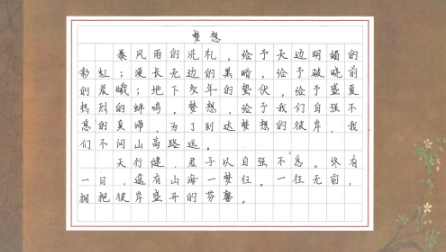 梦想
暴风雨的洗礼，给予天边明媚的
彩虹；漫长无边的黑暗，给予破晓前
的晨曦；地下数年的蛰伏，给予盛夏
热烈的蝉鸣。梦想，给予我们自强不
息的真谛，为了到达梦想的彼岸，我
们不问山高路远。
天行健，君子以自强不息。终有
一日。远有山海一梦往。一往无前。
拥抱彼岸盛开的芬馨。